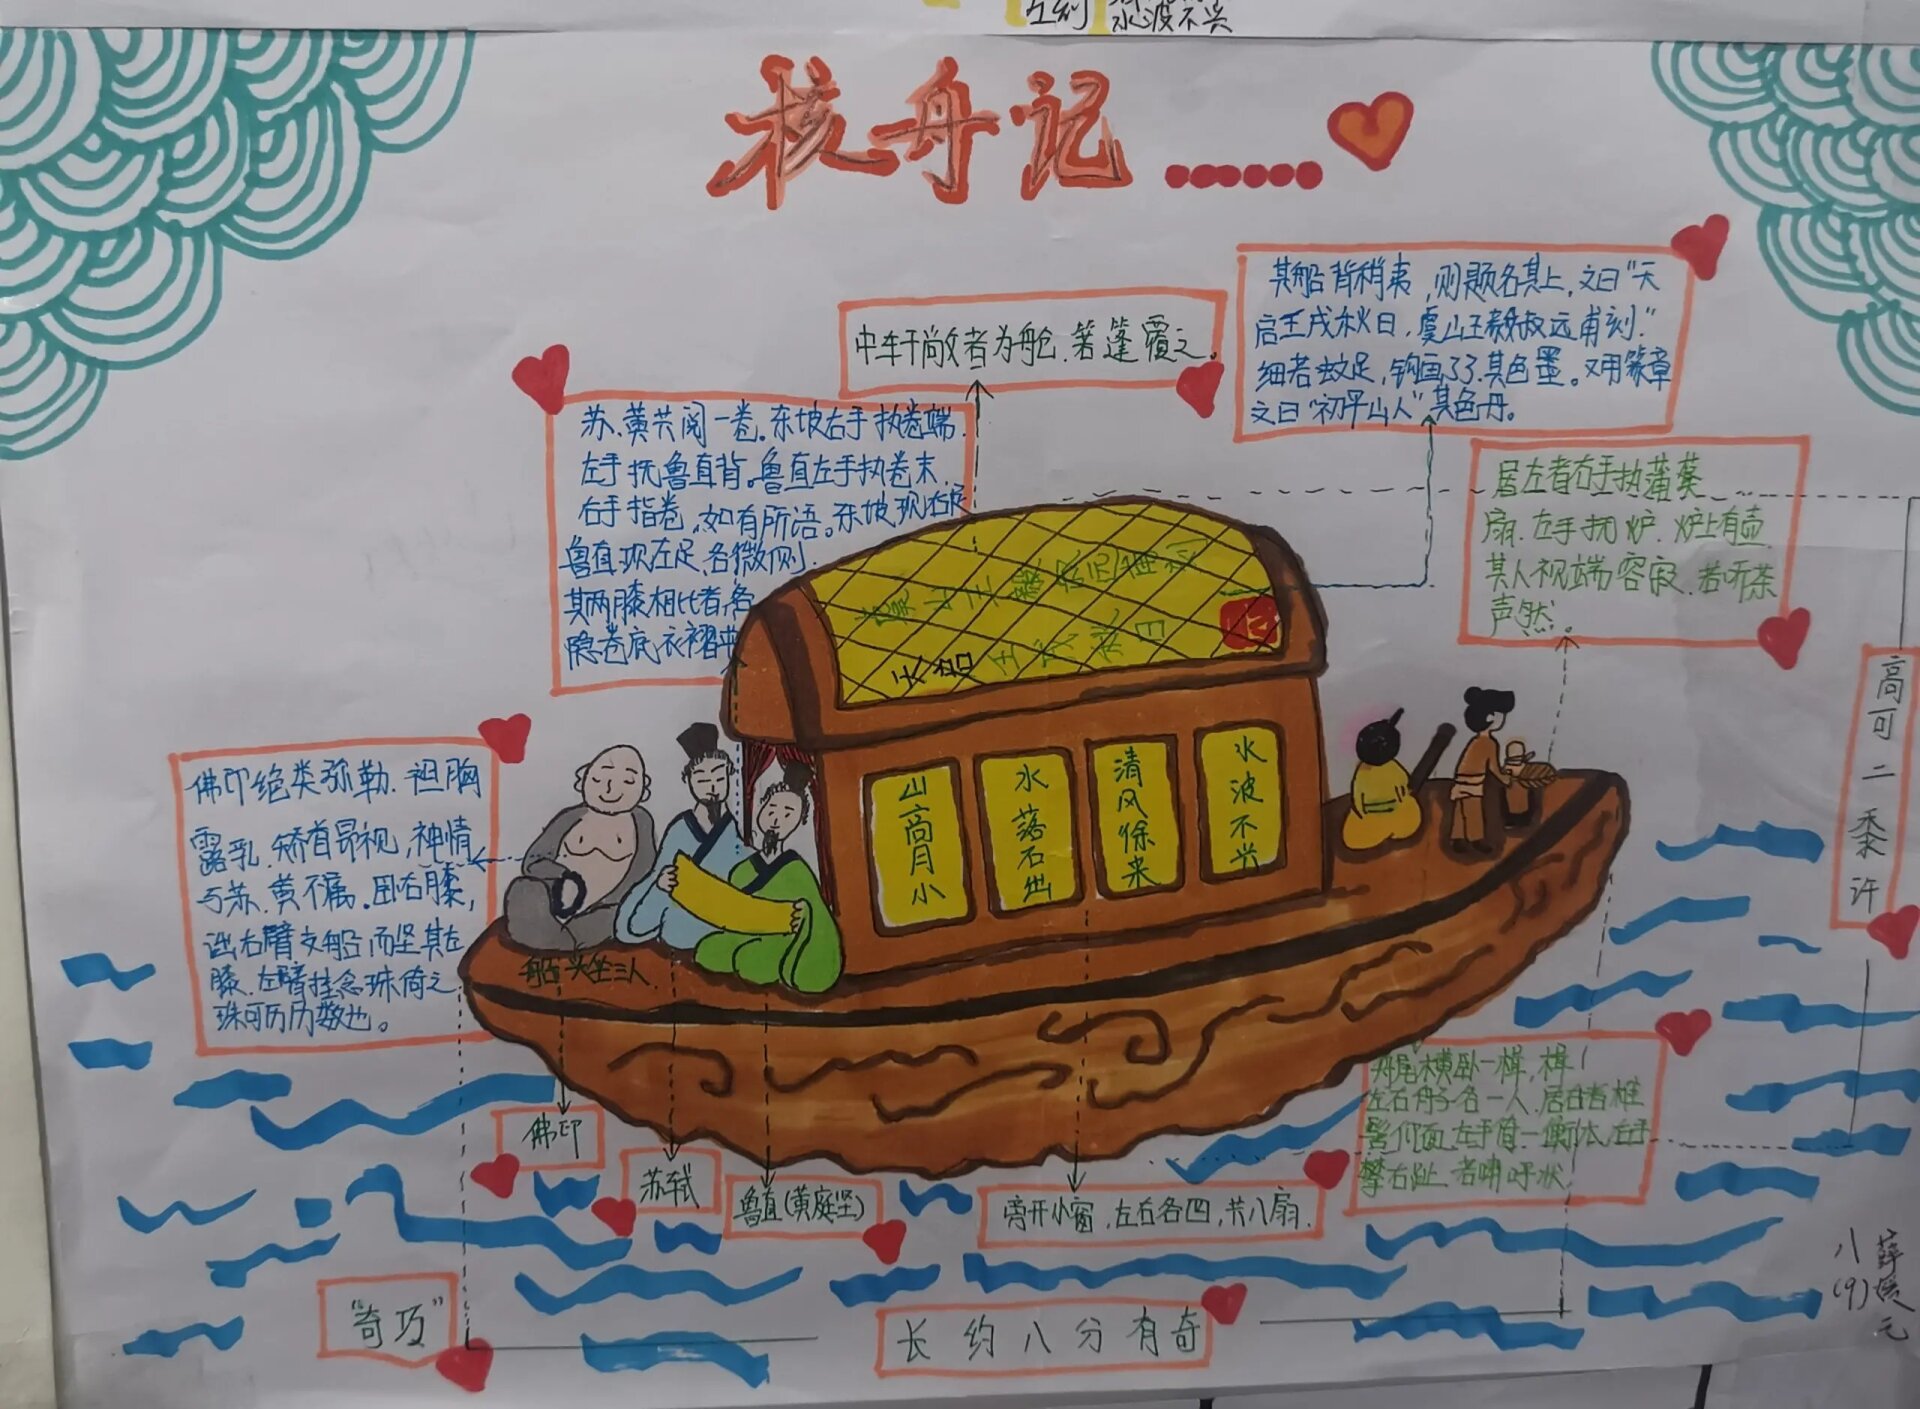 水波不兴
核舟记
其船背稍夷,则题名其上,文曰"天
启壬戌秋日,虞山王毅叔远甫刻."
细若蚊足,钩画了了.其色墨。又用篆章
文曰"初平山人"其色丹。
中轩敞者为舱.箬篷覆之。
苏、黄共阅一卷。东坡右手执卷端.
左手抚鲁直背。鲁直左手执卷末.
右手指卷,如有所语。东坡现右足
鲁直现左足,各微侧.
其两膝相比者,各
隐卷底衣褶中
居左者右手执蒲葵
扇.左手抚炉.炉上有壶.
其人视端容寂.若听茶
声然.
佛印绝类弥勒.袒胸
露乳.矫首昂视,神情
与苏、黄不属.卧右膝,
诎右臂支船而竖其左
膝.左臂挂念珠倚之
珠可历历数也。
高可二黍许
山高月小
水落石出
清风徐来
水波不兴
船头坐三人.
舟尾横卧一楫,楫
左右舟子各一人.居右者椎
髻仰面.左手倚一衡木.右手
攀右趾.若啸呼状.
佛印
苏轼
鲁直(黄庭坚)
旁开小窗,左右各四,共八扇.
"奇巧"
长约八分有奇
八(9)